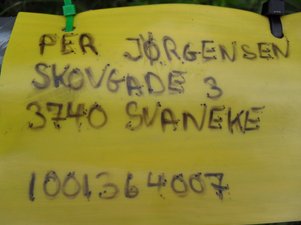 PER JØRGENSEN
SKOVGADE 3
3740 SVANEKE
1001364007